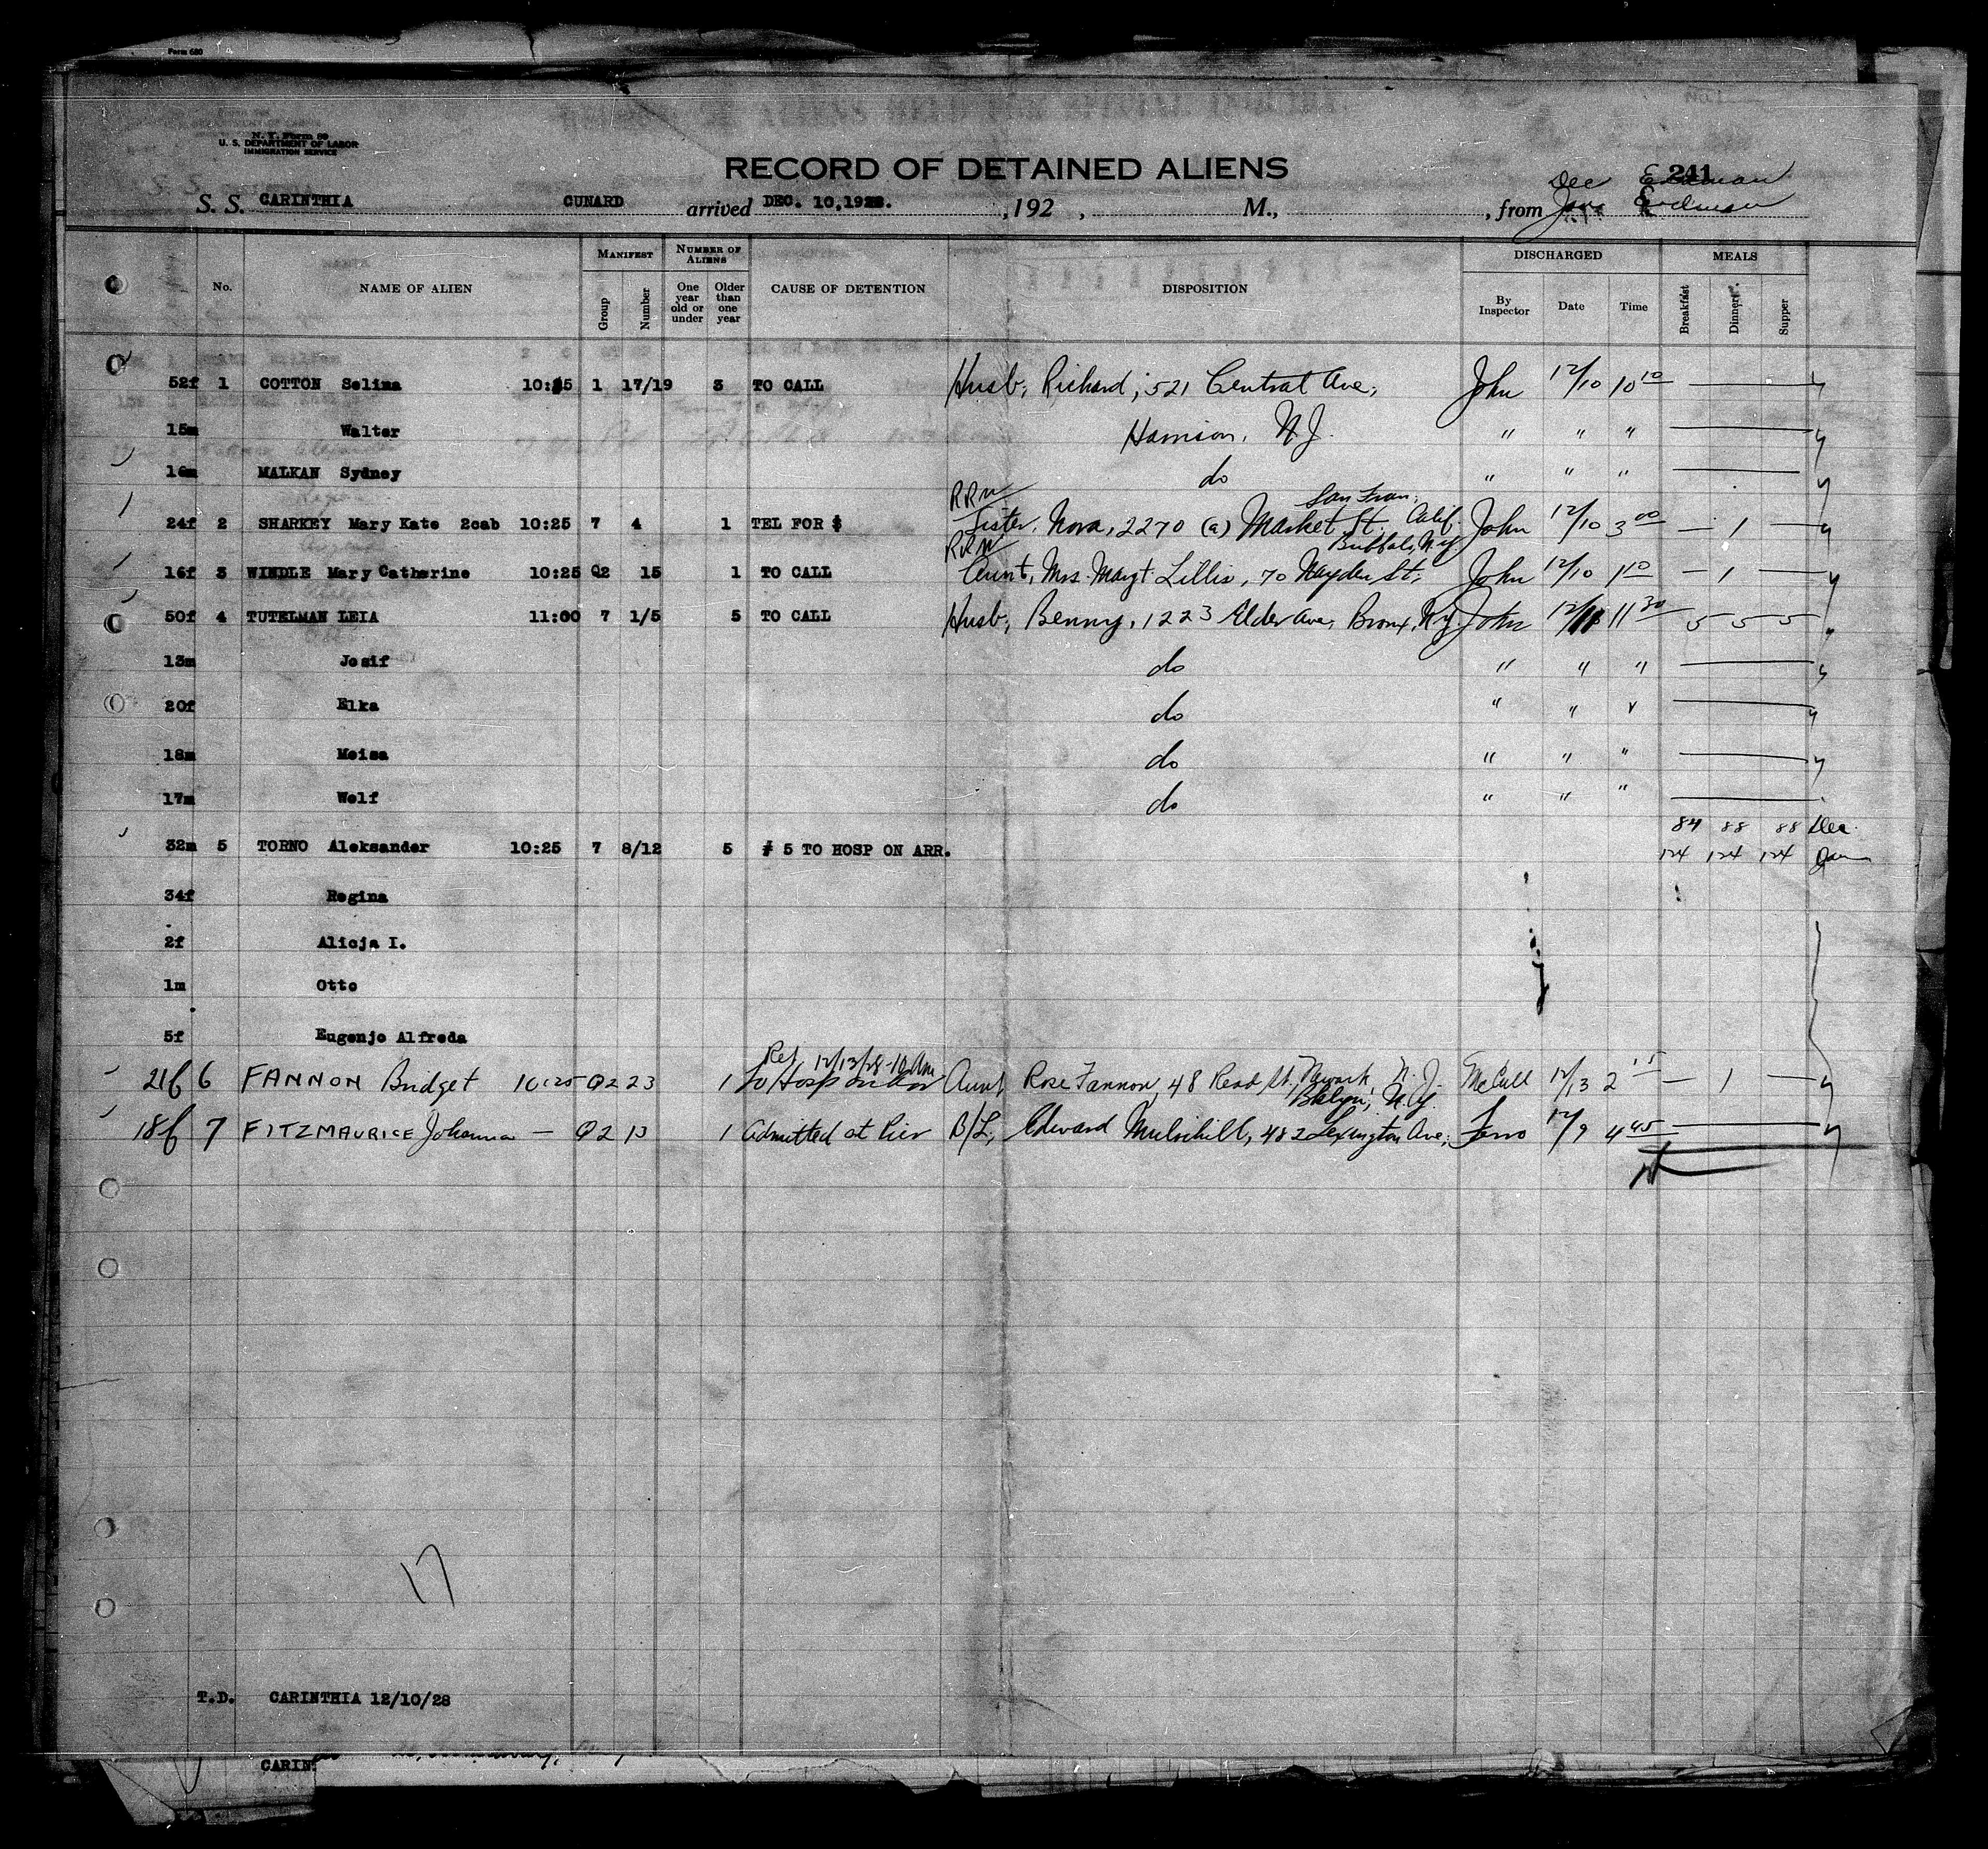 Form 680
N. Y. Form 89
U. S. DEPARTMENT OF LABOR
IMMIGRATION SERVICE
RECORD OF DETAINED ALIENS
241
Dec Erdman
S. S. CARINTHIA CUNARD arrived DEC. 10,1928. ,192 , M., , from Jan Erdman
No. NAME OF ALIEN MANIFEST Group Number NUMBER OF ALIENS One year old or under Older than one year CAUSE OF DETENTION DISPOSITION DISCHARGED By Inspector Date Time MEALS Breakfast Dinner Supper
52f 1 COTTON Selina 10:25 1 17/19 3 TO CALL Husb, Richard, 521 Central Ave, John 12/10 10 10
15m Walter Harrison, N.J. " " "
16m MALKAN Sydney do " " "
RRN San Fran,
24f 2 SHARKEY Mary Kate 2cab 10:25 7 4 1 TEL FOR $ Sister, Nora, 2270 (a) Market St. Calif. John 12/10 3 00 — 1 —
RRN Buffalo, Ny
16f 3 WINDLE Mary Catherine 10:25 Q2 15 1 TO CALL Aunt, Mrs. Margt Lillis, 70 Hayden St, John 12/10 1 10 — 1 —
50f 4 TUTELMAN LEIA 11:00 7 1/5 5 TO CALL Husb, Benny, 1223 Elder Ave, Bronx, Ny. John 12/11 11 30 5 5 5
13m Josif do " " "
20f Elka do " " "
18m Meisa do " " "
17m Wolf do " " "
84 88 88 Dec
32m 5 TORNO Aleksander 10:25 7 8/12 5 # 5 TO HOSP ON ARR. 124 124 124 Jan
34f Regina
2f Alicja I.
1m Otto
5f Eugenjo Alfreda
Ret 12/13/28-10 Am
21f 6 FANNON Bridget 10:25 Q2 23 1 To Hosp on Arr Aunt Rose Fannon, 48 Read St, Newark, N. J. McCull 12/13 2 15 — 1 —
Bklyn, N.Y.
18f 7 FITZMAURICE Johanna — Q2 13 1 Admitted at Pier B/L, Edward Mulvihill, 482 Lexington Ave, Ferro 12/9 4 45
17
T.D. CARINTHIA 12/10/28
CARIN